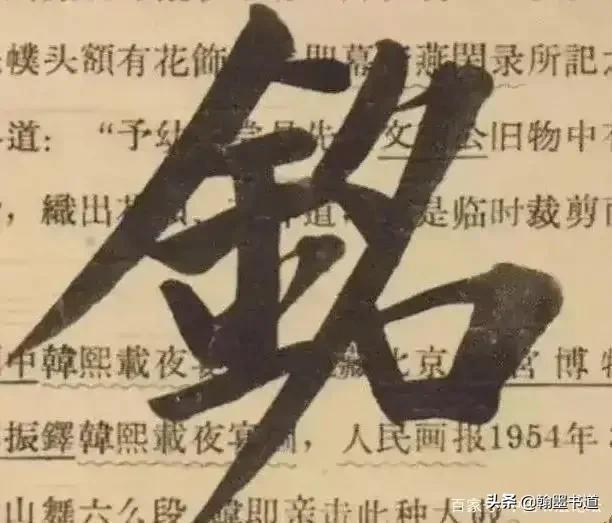 幞头額有花飾 即幕 燕閑录所記
道：“予幼 先 文 公旧物中
，織出花 道 是临时裁剪
銘
中韓熙載夜宴 北京 宮博物
振鐸韓熙載夜宴圖，人民画报1954年
山舞六么段 即亲击此种大
百家
头条 @翰墨书道